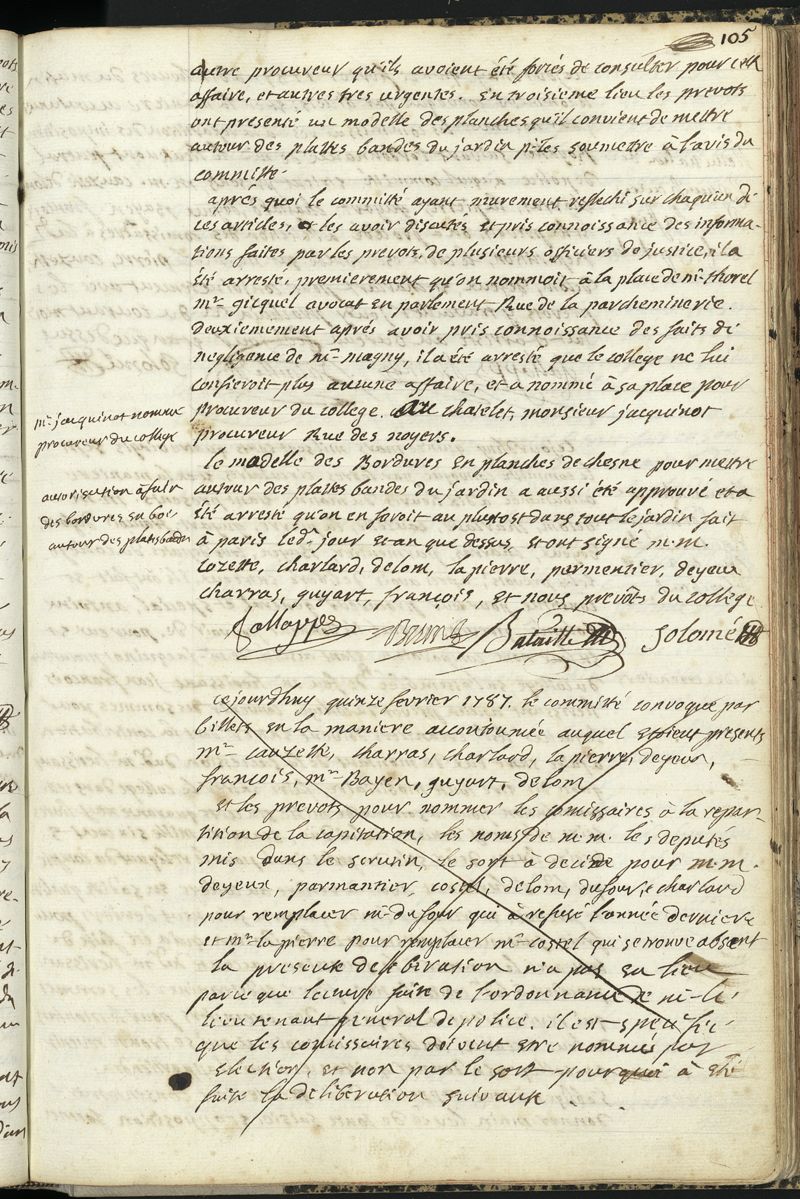 105
autre procureur qu'ils avoient été forcés de consulter pour cette
affaire, et autres tres urgentes. En troisieme lieu les prevots
ont presenté un modelle des planches qu'il convient de mettre
autour des plattes bandes du jardin p. les soumettre à l'avis du
committé.
aprés quoi le committé ayant murement reflechi sur chaqu'un de
ces articles, et les avoir discutés et pris connoissance des informa-
tions faites par les prevots, de plusieurs officiers de justice, il a
été arresté, premierement qu'on nommoit à la place de mr. thorel
mr. gicquel avocat en parlement Rue de la parcheminerie.
deuxiemement aprés avoir pris connoissance des faits de
negligance de mr. magny, il a été arresté que le college ne lui
confieroit plus aucune affaire, et a nommé à sa place pour
procureur du college. au chatelet, monsieur jacquinot
procureur Rue des noyers.
mr. jacquinot nommé
procureur du college
le modelle des Bordures en planches de chesne pour mettre
autour des plattes bandes du jardin a aussi été approuvé et a
été arresté qu'on en feroit au plutost dans tout le jardin fait
à paris led. jour et an que dessus, et ont signé m.m.
Cozette, charlard, delom, la pierre, parmentier, deyeux
charras, guyart, françois, et nous prevôts du college
autorisation à fair
des bordures en bois
autour des plates bandes
Brun Bataille Solomé
cejourdhuy quinze fevrier 1787. le committé convoqué par
billets en la maniere accoutoumée auquel etoient presents
mrs. cauzette, charras, charlard, la pierre, deyeux,
francois, mrs. Bayen, guyart, delom
et les prevots pour nommer les comissaires à la repar-
tition de la capitation, les noms de m.m. les deputés
mis dans le scrutin, le sort à decidé pour m.m.
deyeux, parmantier, costel, delom, dufour, et charlard
pour remplacer mr. dufour qui à refusé l'année derniere
et mr. la pierre pour remplacer mr. costel qui se trouve absent
la presente deliberation n'a pas eu lieu
parce que lecture faite de l'ordonnance de m. le
lieutenant general de police. il est specifié
que les comissaires doivent etre nommés par
election, et non par le sort pourquoi à été
faite la deliberation suivante.